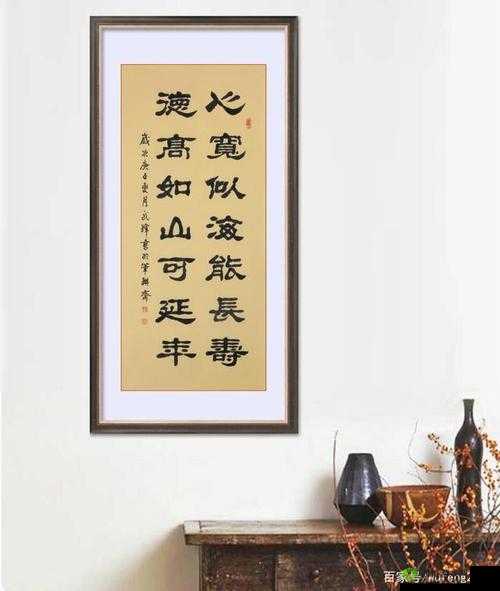 心寬似海能長壽
德高如山可延年
歲次庚子夏月武鋒書於筆耕齋
百家号/wufeng2